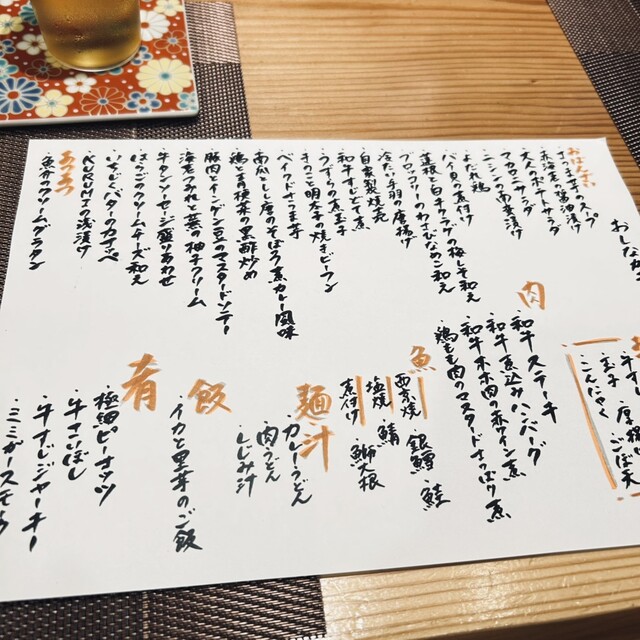 おしながき
おばんざい
さつま芋のスープ
赤海老の醤油漬け
大人のポテトサラダ
マカロニサラダ
ニシンの南蛮漬け
よだれ鶏
バイ貝の煮付け
蓮根と白キクラゲの梅しそ和え
ブロッコリーのわさびなめこ和え
冷たい手羽の唐揚げ
自家製焼売
和牛すじどて煮
うずらの煮玉子
きのこと明太子の焼きビーフン
ベイクドさつま芋
南瓜としし唐のそぼろ煮カレー風味
鶏ときの根菜の黒酢炒め
豚肉とインゲン豆のマスタードソテー
海老のみぞれと蕪の柚子クリーム
牛タンソーセージ盛り合わせ
はっさくのクリームチーズ和え
いちじくバターのカナッペ
KURUMIの浅漬け
あつあつ
魚介のクリームグラタン
牛すじ・厚揚げ
玉子・ごぼ天
こんにゃく
肉
和牛ステーキ
和牛煮込みハンバーグ
和牛ホホ肉の赤ワイン煮
鶏もも肉のマスタードさっぱり煮
魚
西京焼 銀鱈・鮭
塩焼 鯖
煮付け 鰤大根
麺・汁
カレーうどん
肉うどん
しじみ汁
飯
イカと里芋のご飯
肴
極細ピーナッツ
牛さいぼし
牛すじジャーキー
ミミガースモーク